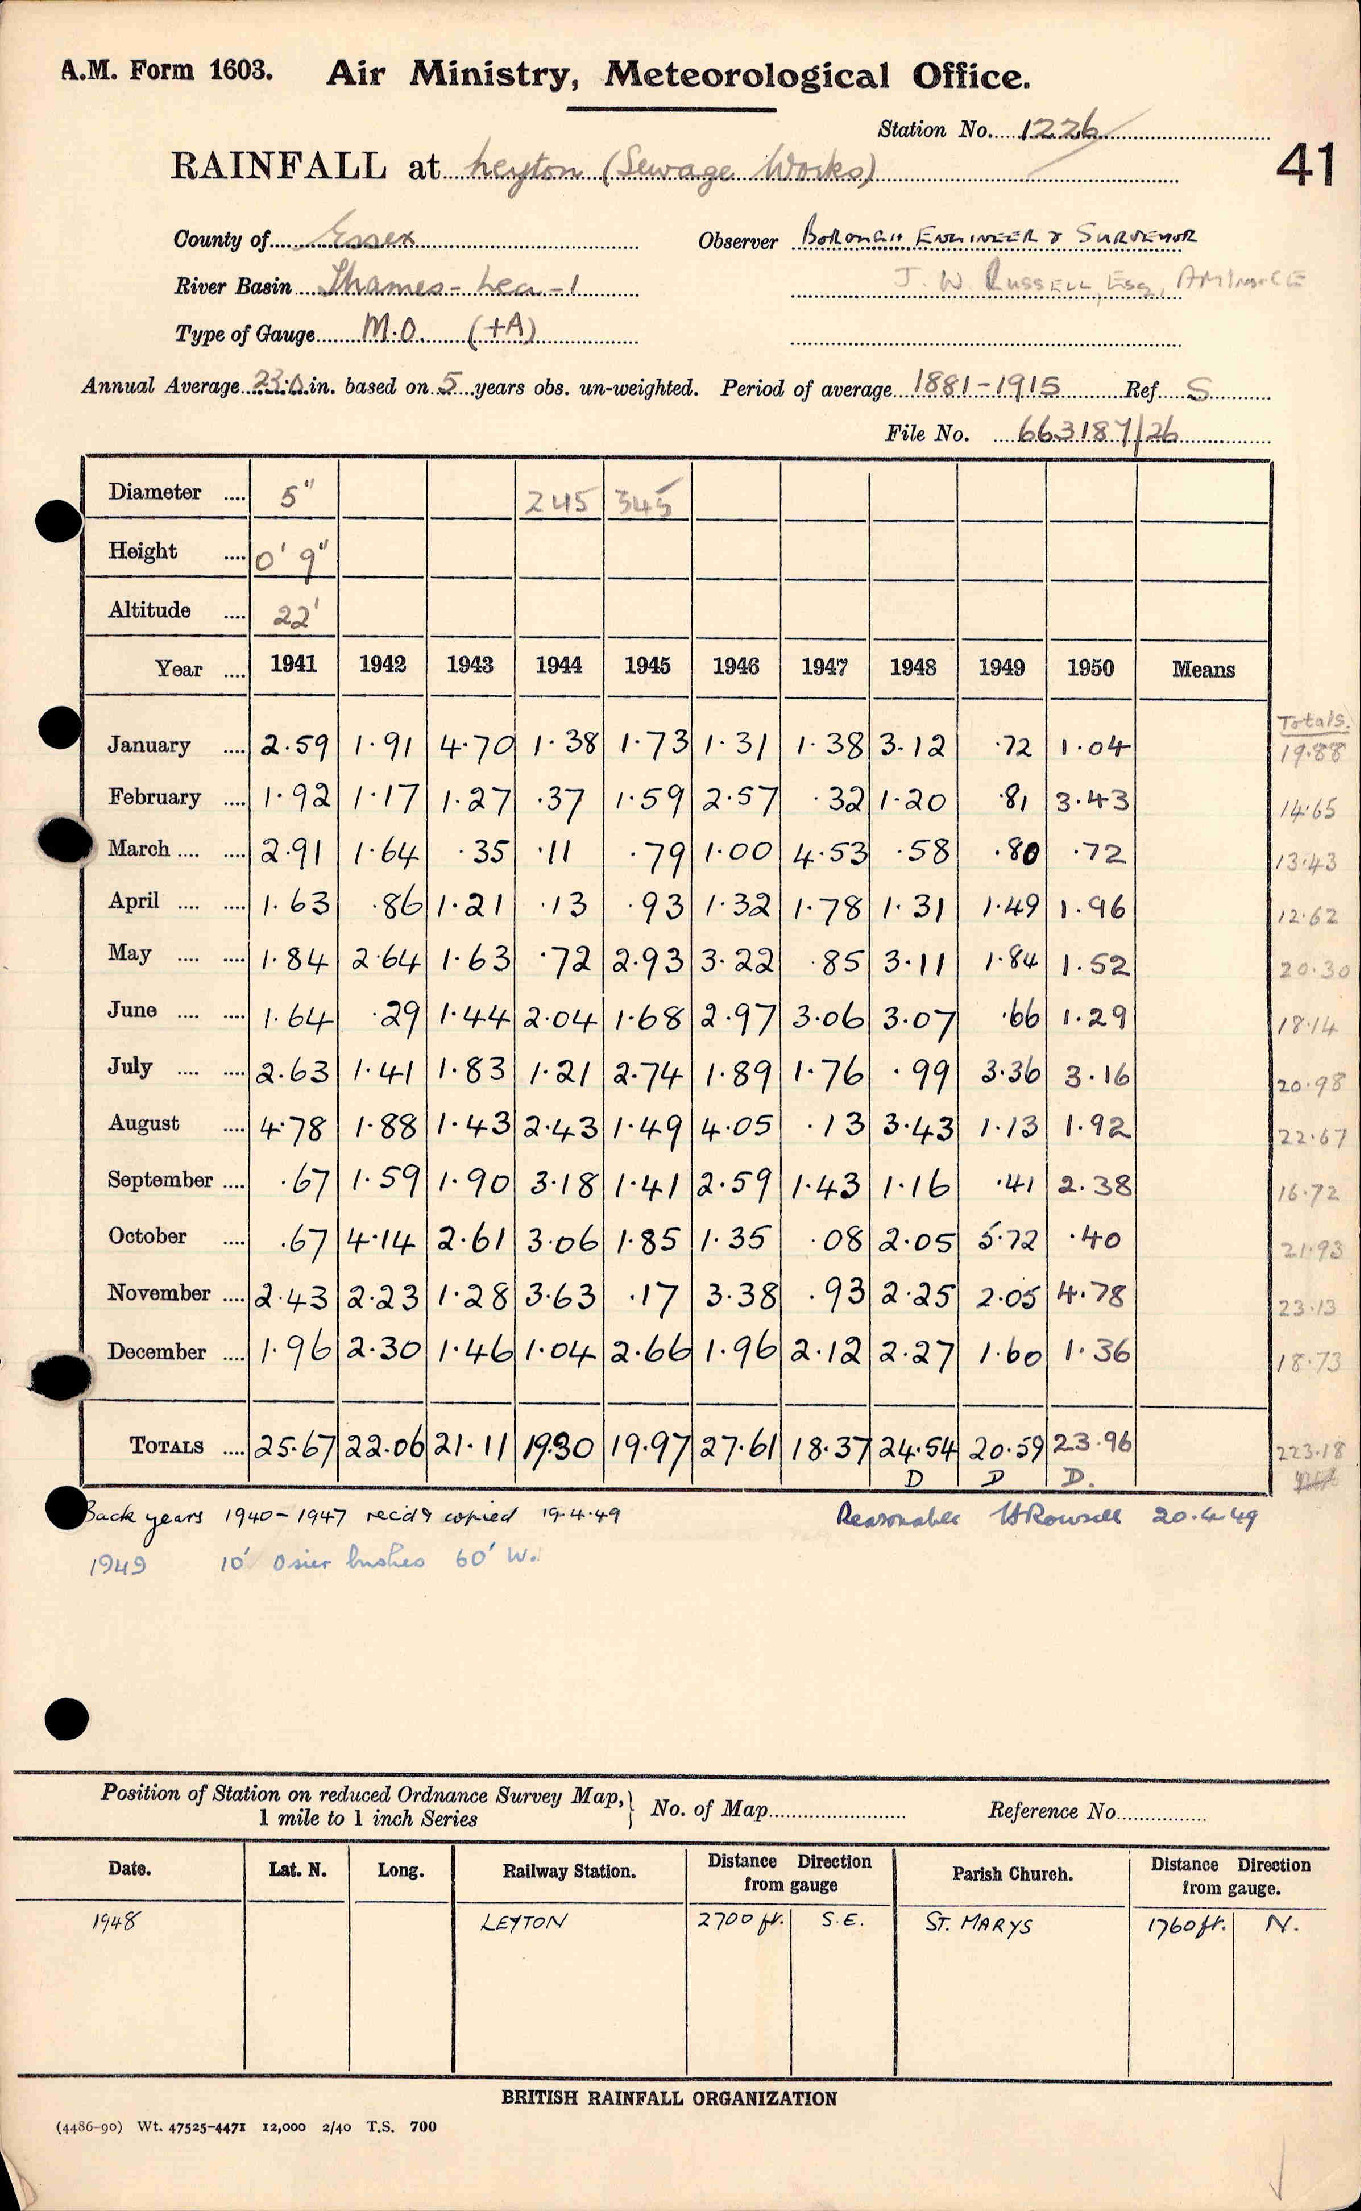 A.M. Form 1603. Air Ministry, Meteorological Office.
Station No. 1226
41
RAINFALL at Leyton (Sewage Works)
County of Essex Observer BOROUGH ENGINEER & SURVEYOR
River Basin Thames - Lea - 1 J. W. RUSSELL, Esq., AMInstCE
Type of Gauge M.O. (+A)
Annual Average 23.0 in. based on 5 years obs. un-weighted. Period of average 1881-1915 Ref S
File No. 663187/26
Diameter .... 5" 245 345
Height .... 0' 9"
Altitude .... 22'
Year .... 1941 1942 1943 1944 1945 1946 1947 1948 1949 1950 Means
Totals.
January .... 2.59 1.91 4.70 1.38 1.73 1.31 1.38 3.12 .72 1.04 19.88
February .... 1.92 1.17 1.27 .37 1.59 2.57 .32 1.20 .81 3.43 14.65
March .... .... 2.91 1.64 .35 .11 .79 1.00 4.53 .58 .80 .72 13.43
April .... .... 1.63 .86 1.21 .13 .93 1.32 1.78 1.31 1.49 1.96 12.62
May .... .... 1.84 2.64 1.63 .72 2.93 3.22 .85 3.11 1.84 1.52 20.30
June .... .... 1.64 .29 1.44 2.04 1.68 2.97 3.06 3.07 .66 1.29 18.14
July .... .... 2.63 1.41 1.83 1.21 2.74 1.89 1.76 .99 3.36 3.16 20.98
August .... 4.78 1.88 1.43 2.43 1.49 4.05 .13 3.43 1.13 1.92 22.67
September .... .67 1.59 1.90 3.18 1.41 2.59 1.43 1.16 .41 2.38 16.72
October .... .67 4.14 2.61 3.06 1.85 1.35 .08 2.05 5.72 .40 21.93
November .... 2.43 2.23 1.28 3.63 .17 3.38 .93 2.25 2.05 4.78 23.13
December .... 1.96 2.30 1.46 1.04 2.66 1.96 2.12 2.27 1.60 1.36 18.73
TOTALS .... 25.67 22.06 21.11 19.30 19.97 27.61 18.37 24.54 20.59 23.96 223.18
D D D.
Back years 1940-1947 recd & copied 19.4.49 Reasonable HRowsell 20.4.49
1949 10' Osier bushes 60' W.
Position of Station on reduced Ordnance Survey Map,
1 mile to 1 inch Series
No. of Map Reference No.
Date. Lat. N. Long. Railway Station. Distance Direction from gauge Parish Church. Distance Direction from gauge.
1948 LEYTON 2700 ft. S.E. ST. MARYS 1760 ft. N.
BRITISH RAINFALL ORGANIZATION
(4486-90) Wt. 47525-4471 12,000 2/40 T.S. 700